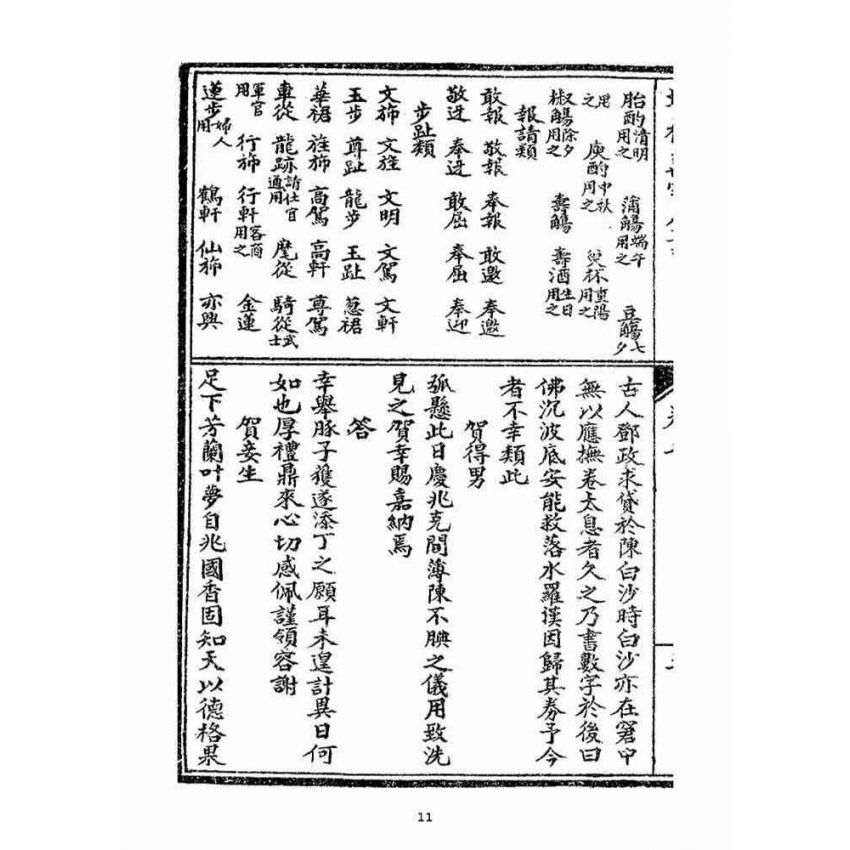 胎酌清明用之 蒲觴端午用之 豆觴七夕
用之 庾酌中秋用之 萸杯重陽用之
椒觴除夕用之 壽觴 壽酒生日用之
報請類
敢報 敬報 奉報 敢邀 奉邀
敬迓 奉迓 敢屈 奉屈 奉迎
步趾類
文斾 文旌 文明 文駕 文軒
玉步 尊趾 龍步 玉趾 葱裙
華裙 旌斾 高駕 高軒 尊駕
車從 龍跡請仕官通用 麾從 騎從武士
軍官用 行斾 行軒客商用之 金蓮
蓮步婦人用 鶴軒 仙斾 亦與
古人鄧政求貸於陳白沙時白沙亦在窘中
無以應撫卷太息者久之乃書數字於後曰
佛沉波底安能救落水羅漢因歸其券予今
者不幸類此
賀得男
弧懸此日慶兆充閭薄陳不腆之儀用致洗
見之賀幸賜嘉納焉
答
幸舉豚子獲遂添丁之願耳未遑計異日何
如也厚禮鼎來心切感佩謹領容謝
賀妾生
足下芳蘭叶夢自兆國香固知天以德格果
11